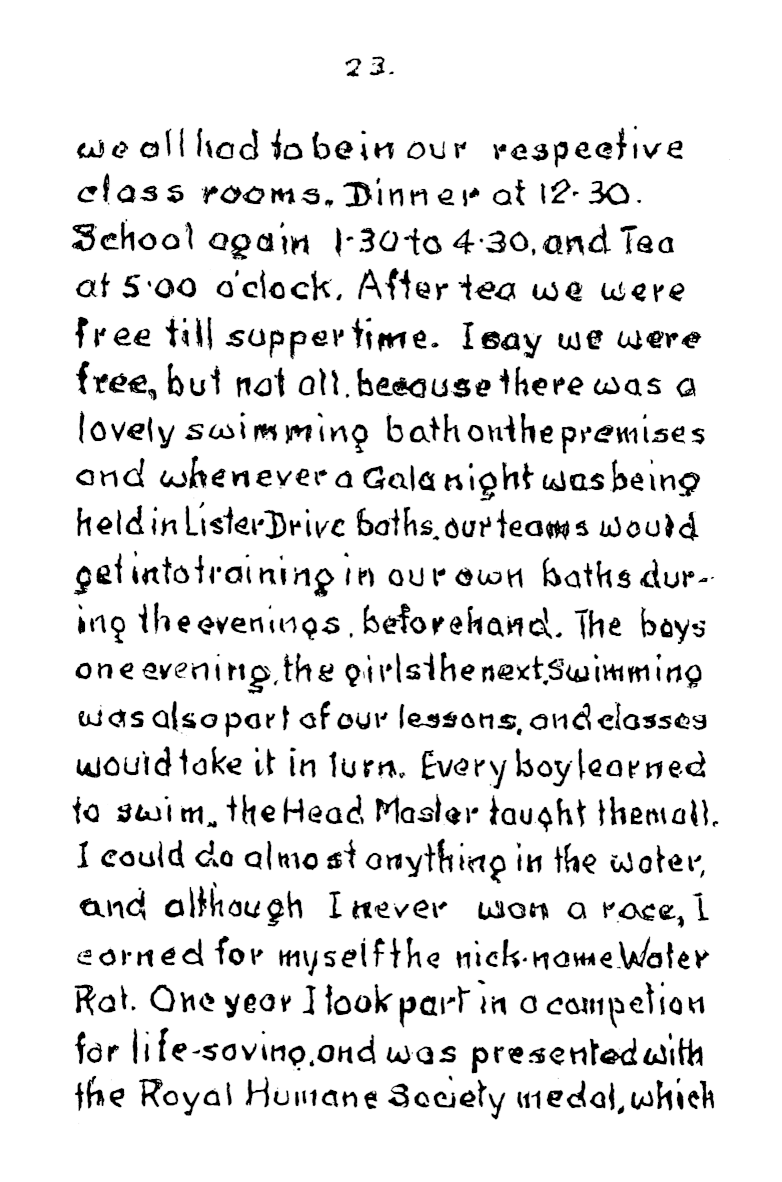 23.
we all had to be in our respective
class rooms. Dinner at 12·30.
School again 1·30 to 4·30, and Tea
at 5·00 o'clock. After tea we were
free till supper time. I say we were
free, but not all, because there was a
lovely swimming bath on the premises
and whenever a Gala night was being
held in Lister Drive baths, our teams would
get into training in our own baths dur-
ing the evenings, beforehand. The boys
one evening, the girls the next, Swimming
was also part of our lessons, and classes
would take it in turn. Every boy learned
to swim, the Head Master taught them all.
I could do almost anything in the water,
and although I never won a race, I
earned for myself the nick-name Water
Rat. One year I took part in a competion
for life-saving, and was presented with
the Royal Humane Society medal, which